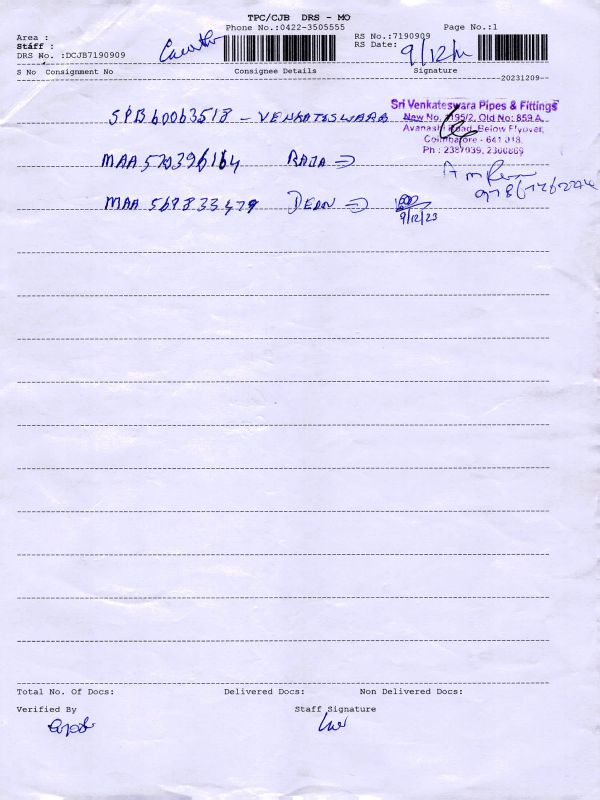 TPC/CJB DRS - MO
Phone No.:0422-3505555
Page No.:1
Area :
RS No.:7190909
Staff :
RS Date: 9/12/
DRS No. :DCJB7190909
S No Consignment No Consignee Details Signature
20231209
SPB60063518 - VENKATESWARA
Sri Venkateswara Pipes & Fittings
New No. 1195/2, Old No: 859 A,
Avanashi Road, Below Flyover,
Coimbatore - 641 018.
Ph : 2387939, 2300869
MAA 570396164 RAJA
MAA 569833479 DEAN
9/12/23
Total No. Of Docs: Delivered Docs: Non Delivered Docs:
Verified By Staff Signature